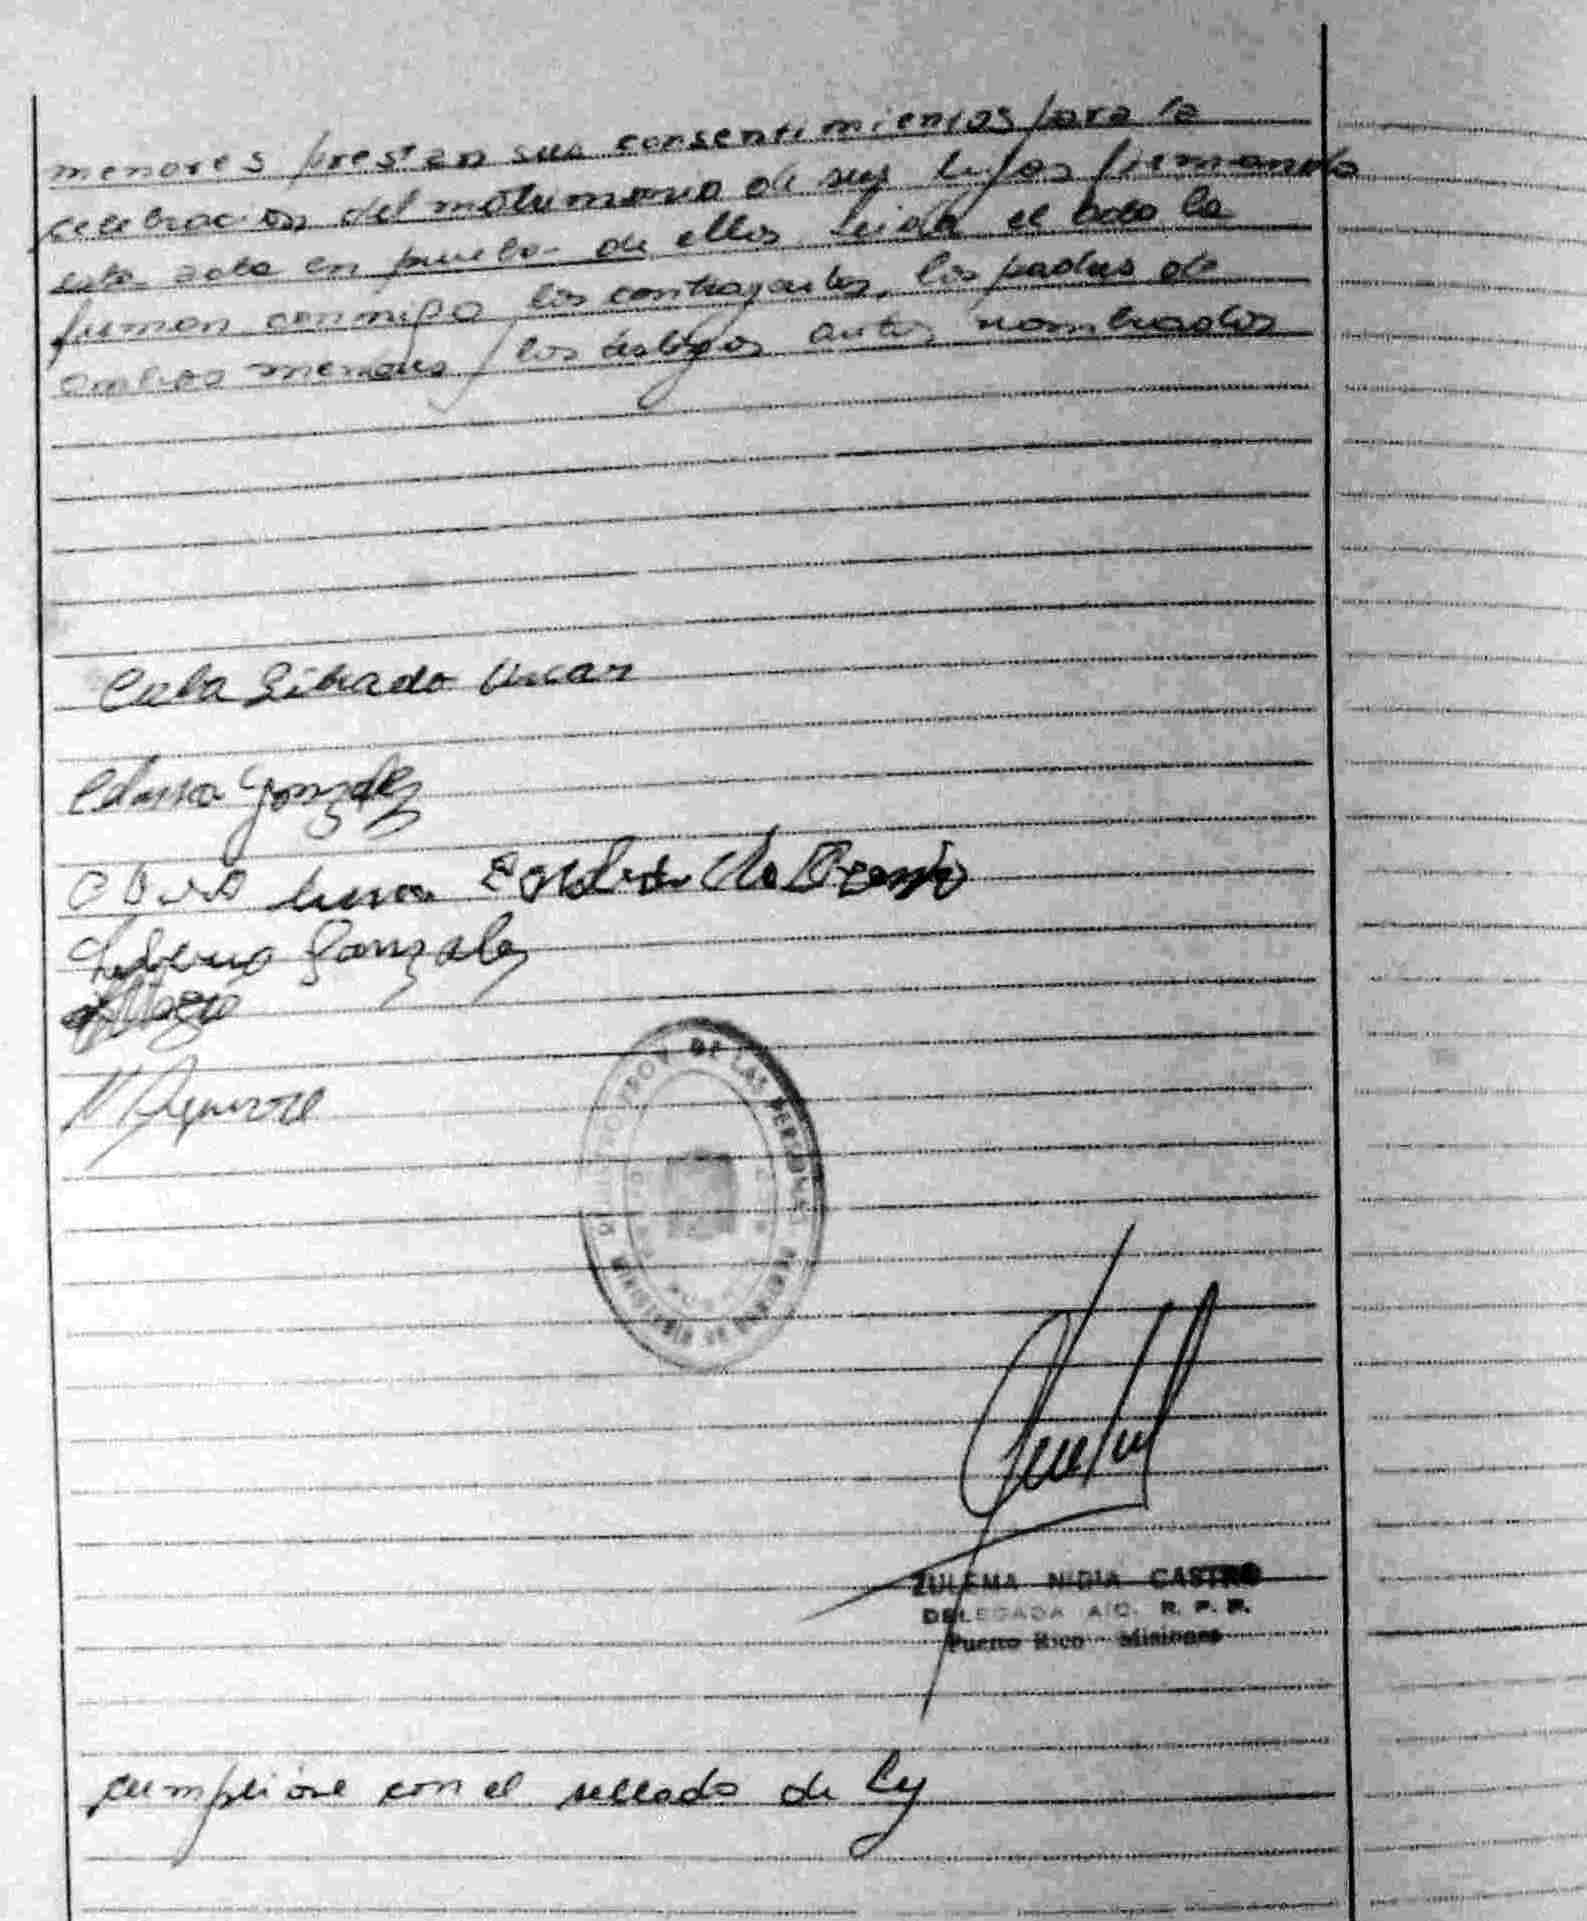 menores prestan sus consentimientos para la
celebracion del matrimonio de sus hijos firmando
esta acta en prueba de ellos. Leida el acta la
firman conmigo los contrayentes, los padres de
ambos menores y los testigos antes nombrados
Librado Oscar
Gonzalez
Gonzalez
N Aguirre
PROV. DE LAS PERSONAS
MINISTERIO DE GOBIERNO
ZULEMA NIDIA CASTRO
DELEGADA A/C. R. P. P.
Puerto Rico - Misiones
cumpliose con el sellado de Ley